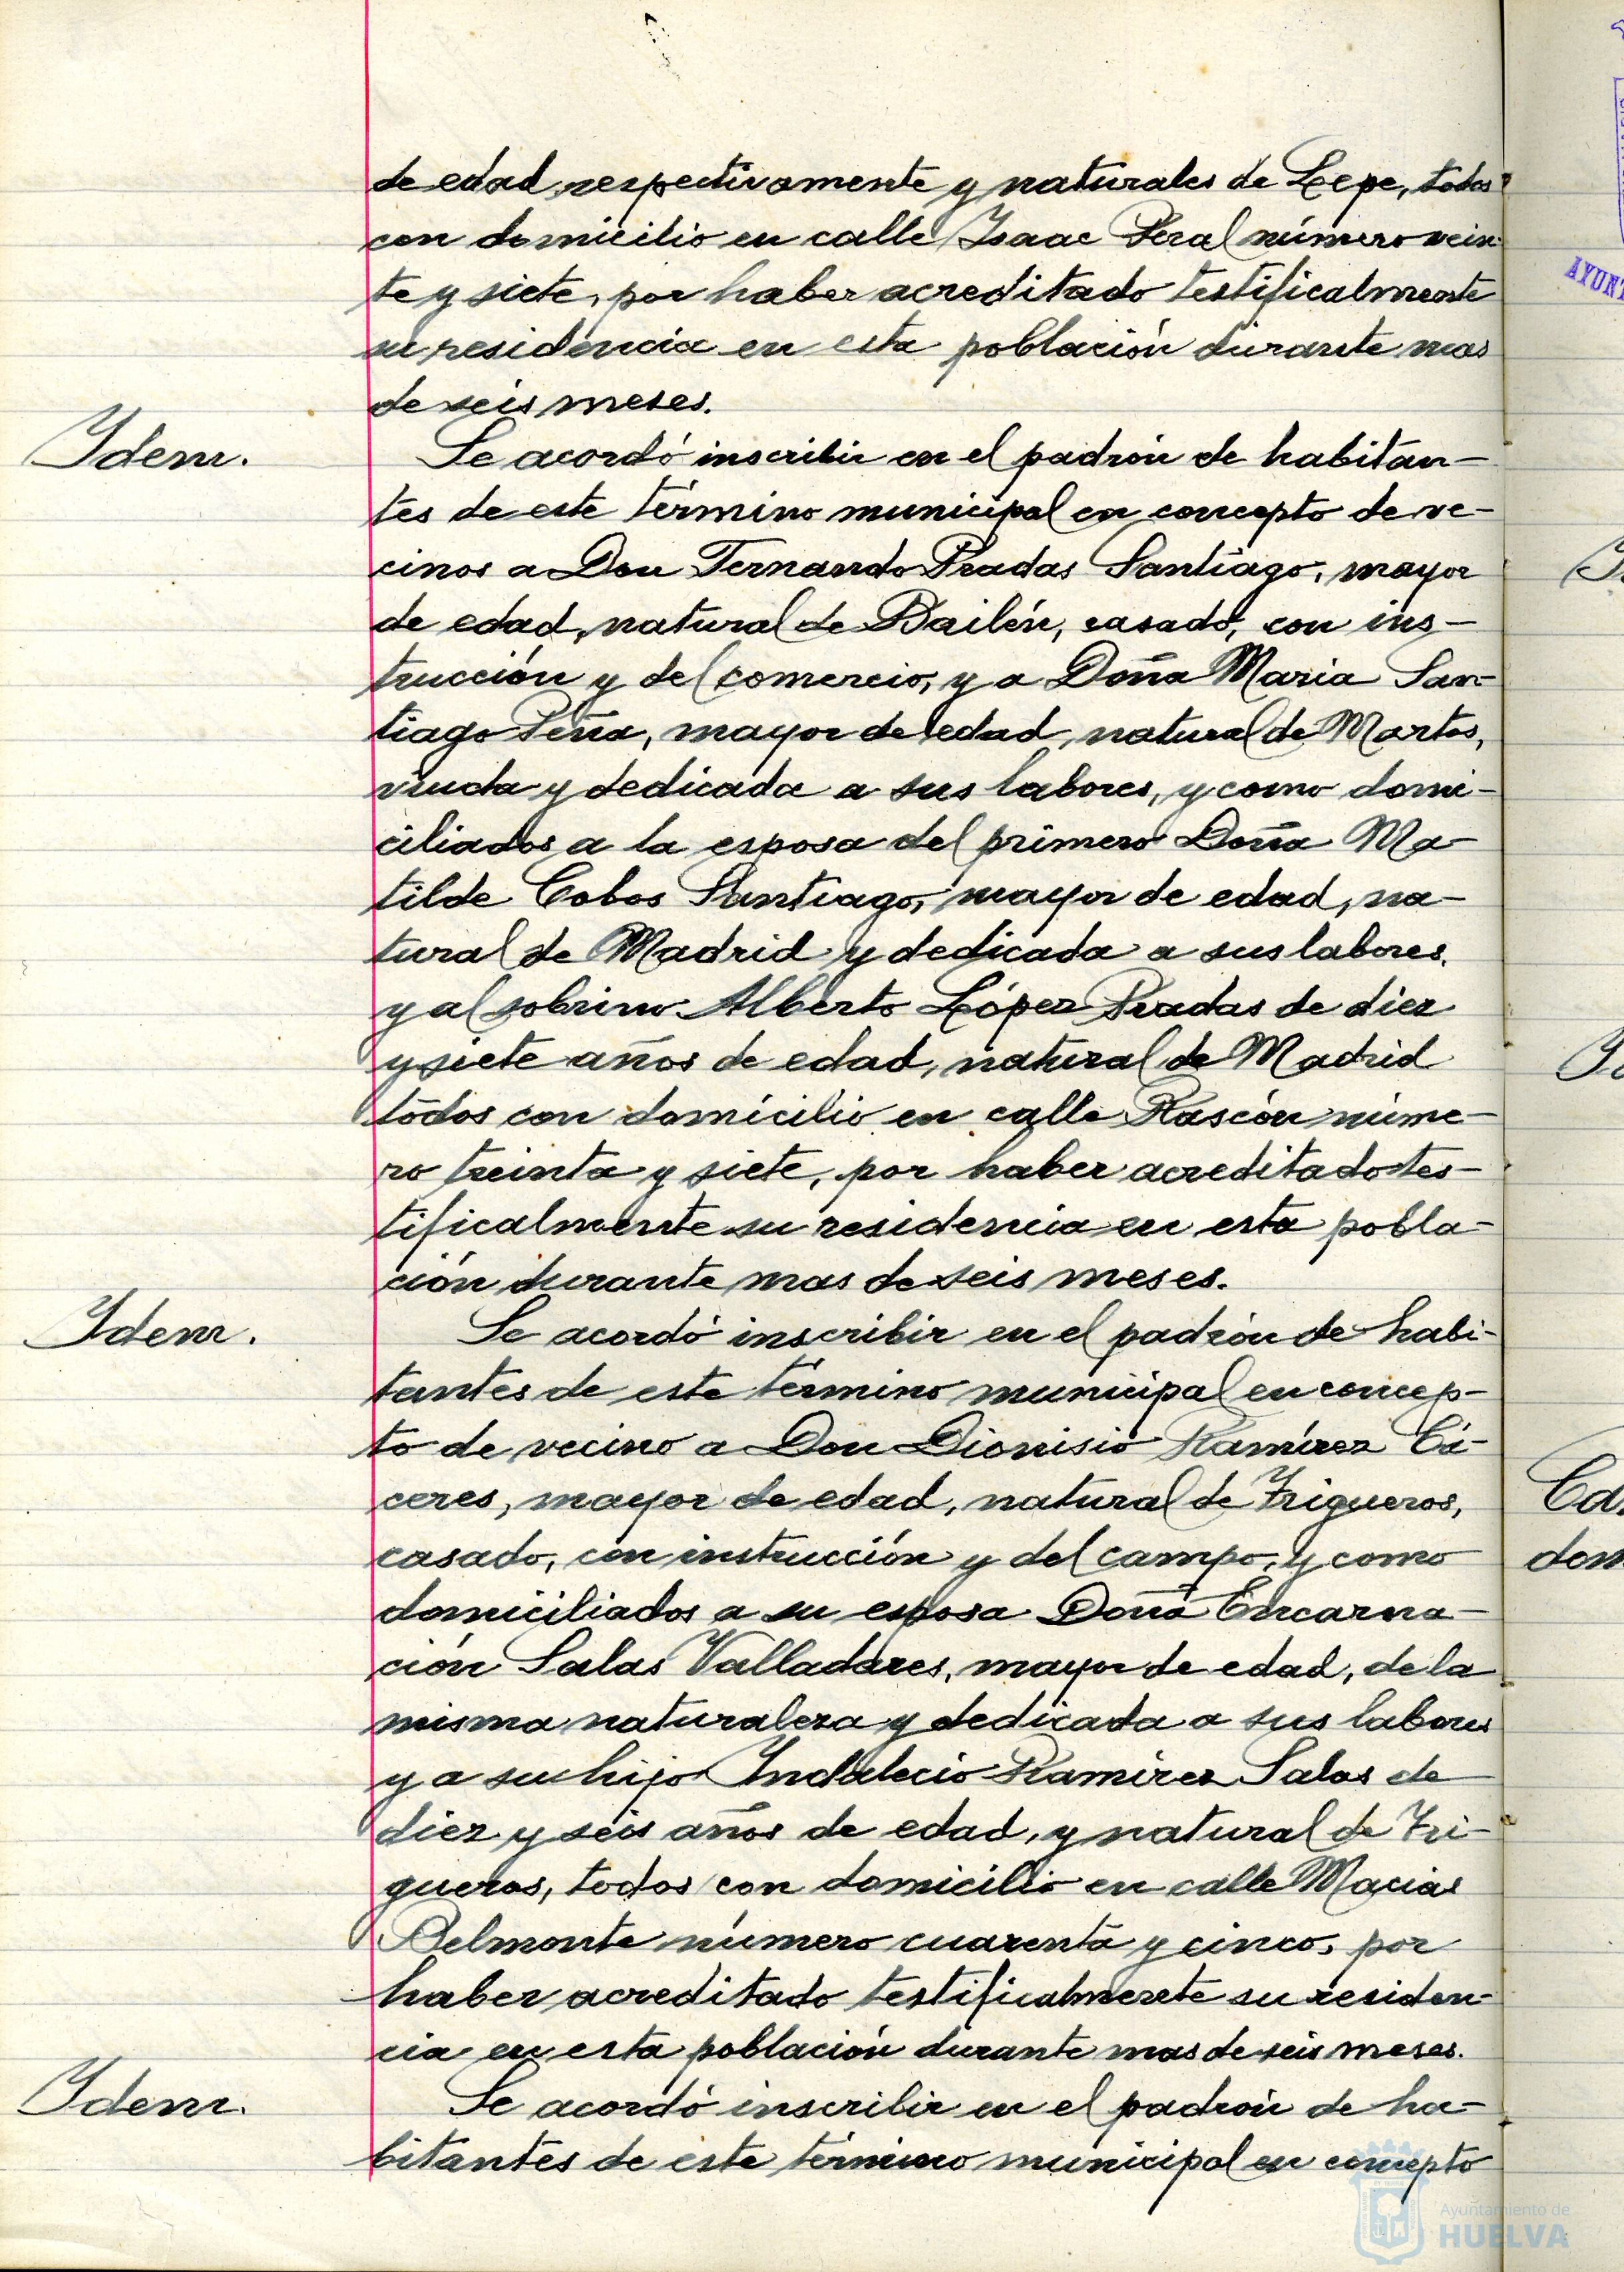 de edad respectivamente y naturales de Lepe, todos
con domicilio en calle Isaac Peral número vein-
te y siete, por haber acreditado testificalmente
su residencia en esta población durante mas
de seis meses.
Idem.
Se acordó inscribir en el padrón de habitan-
tes de este término municipal en concepto de ve-
cinos a Don Fernando Pradas Santiago, mayor
de edad, natural de Bailén, casado, con ins-
trucción y del comercio, y a Doña Maria San-
tiago Peña, mayor de edad, natural de Martos,
viuda y dedicada a sus labores, y como domi-
ciliados a la esposa del primero Doña Ma-
tilde Cobos Santiago, mayor de edad, na-
tural de Madrid y dedicada a sus labores,
y al sobrino Alberto López Pradas de diez
y siete años de edad, natural de Madrid
todos con domicilio en calle Rascón núme-
ro treinta y siete, por haber acreditado tes-
tificalmente su residencia en esta pobla-
ción durante mas de seis meses.
Idem.
Se acordó inscribir en el padrón de habi-
tantes de este término municipal en concep-
to de vecino a Don Dionisio Ramírez Cá-
ceres, mayor de edad, natural de Trigueros,
casado, con instrucción y del campo, y como
domiciliados a su esposa Doña Encarna-
ción Salas Valladares, mayor de edad, de la
misma naturaleza y dedicada a sus labores
y a su hijo Indalecio Ramírez Salas de
diez y seis años de edad, y natural de Tri-
gueros, todos con domicilio en calle Macias
Belmonte número cuarenta y cinco, por
haber acreditado testificalmente su residen-
cia en esta población durante mas de seis meses.
Idem.
Se acordó inscribir en el padrón de ha-
bitantes de este término municipal en concepto
Ayuntamiento de
HUELVA